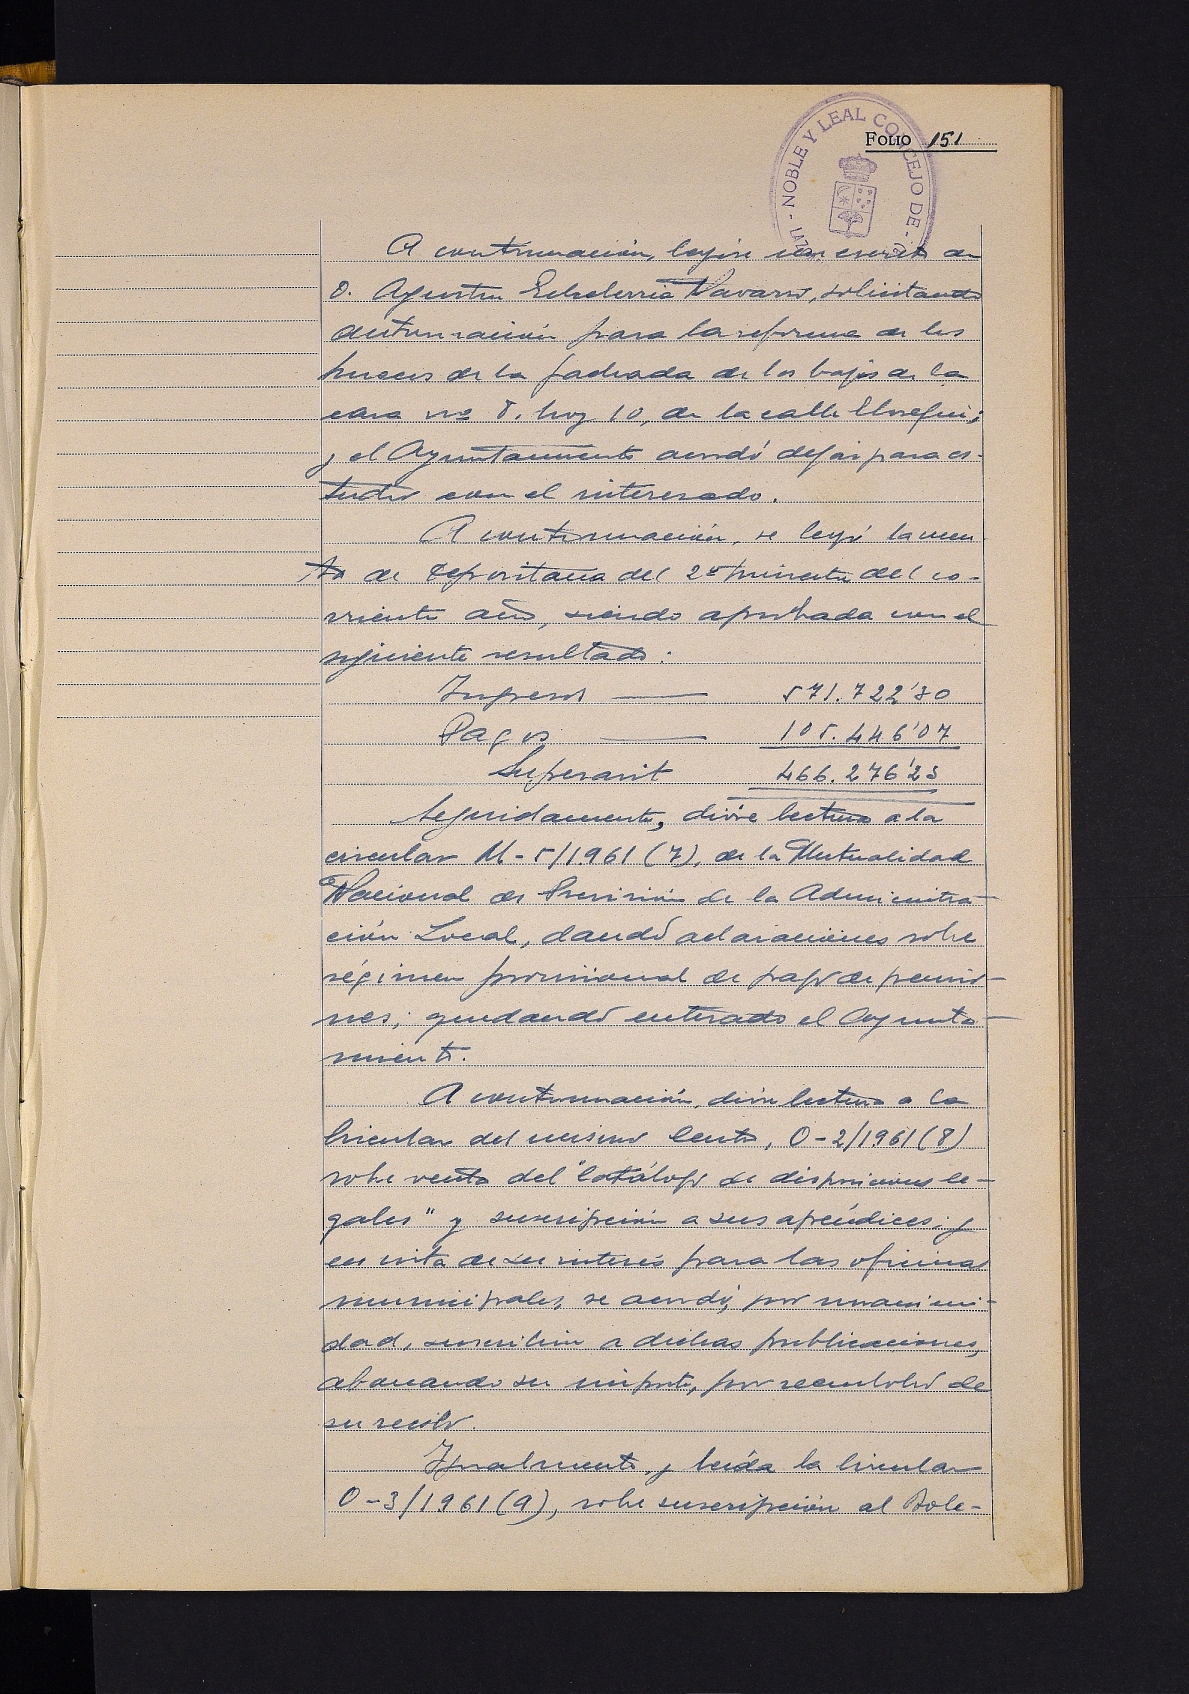 - NOBLE Y LEAL CONCEJO DE -
FOLIO 151
A continuación, leyóse un escrito de
D. Agustin Echeberria Navarro, solicitando
autorización para la reforma de los
huecos de la fachada de los bajos de la
casa nº 8, hoy 10, de la calle
y el Ayuntamiento acordó dejar para es-
tudio con el interesado.
A continuación, se leyó la cuen-
ta de Depositaria del 2º trimestre del co-
rriente año, siendo aprobada con el
siguiente resultado:
Ingresos —— 571.722'30
Pagos —— 105.446'07
Superavit 466.276'23
Seguidamente, dióse lectura a la
circular M-5/1961 (7), de la Mutualidad
Nacional de Previsión de la Administra-
ción Local, dando aclaraciones sobre
régimen provisional de pago de pensio-
nes; quedando enterado el Ayunta-
miento.
A continuación, dióse lectura a la
Circular del mismo Centro, O-2/1961 (8)
sobre venta del "Catálogo de disposiciones le-
gales" y suscripción a sus apéndices; y
en vista de su interés para las oficinas
municipales, se acordó, por unanimi-
dad, suscribirse a dichas publicaciones,
abonando su importe, por reembolso de
su recibo.
Igualmente, y leída la Circular
O-3/1961 (9), sobre suscripción al Bole-